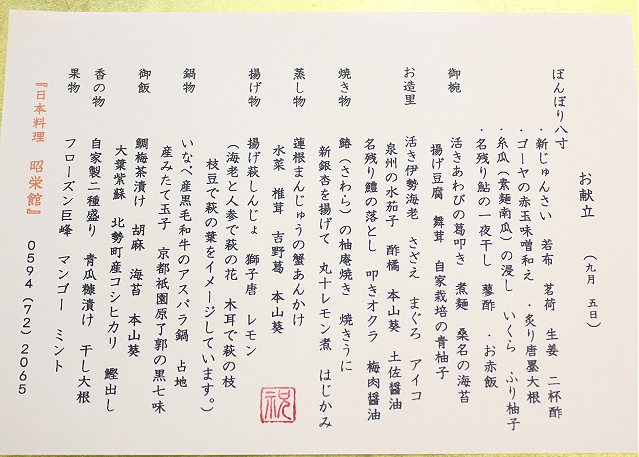 お献立　（九月　五日）
ぼんぼり八寸
・新じゅんさい　若布　茗荷　生姜　二杯酢
・ゴーヤの赤玉味噌和え　・炙り唐墨大根
・糸瓜（素麺南瓜）の浸し　いくら　ふり柚子
・名残り鮎の一夜干し　蓼酢　・お赤飯
御椀　活きあわびの葛叩き　煮麺　桑名の海苔
揚げ豆腐　舞茸　自家栽培の青柚子
お造里　活き伊勢海老　さざえ　まぐろ　アイコ
泉州の水茄子　酢橘　本山葵　土佐醤油
名残り鱧の落とし　叩きオクラ　梅肉醤油
焼き物　鰆（さわら）の柚庵焼き　焼きうに
新銀杏を揚げて　丸十レモン煮　はじかみ
蒸し物　蓮根まんじゅうの蟹あんかけ
水菜　椎茸　吉野葛　本山葵
揚げ物　揚げ萩しんじょ　獅子唐　レモン
（海老と人参で萩の花　木耳で萩の枝
枝豆で萩の葉をイメージしています。）
鍋物　いなべ産黒毛和牛のアスパラ鍋　占地
産みたて玉子　京都祇園原了郭の黒七味
御飯　鯛梅茶漬け　胡麻　海苔　本山葵
大葉紫蘇　北勢町産コシヒカリ　鰹出し
香の物　自家製二種盛り　青瓜糠漬け　干し大根
果物　フローズン巨峰　マンゴー　ミント
『日本料理　昭栄館』　0594（72）2065
祝